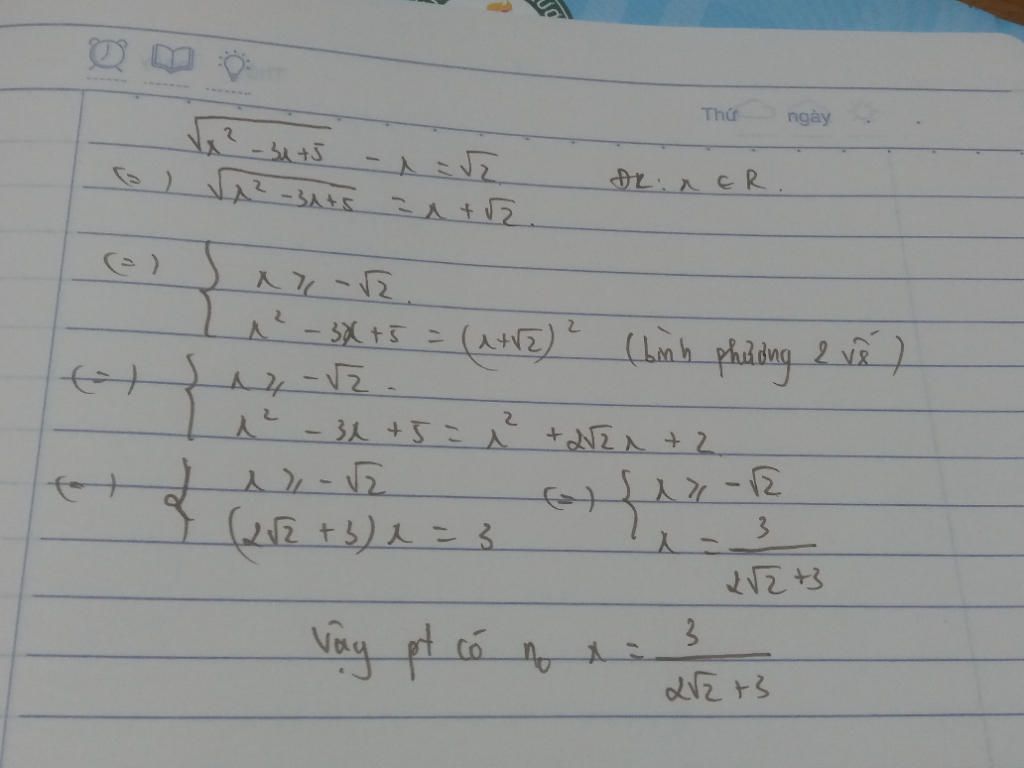 Thứ ngày
√(x² - 3x + 5) - x = √2 ĐK: x ∈ R.
(=) √(x² - 3x + 5) = x + √2.
(=) { x ≥ -√2.
x² - 3x + 5 = (x + √2)² (bình phương 2 vế)
(=) { x ≥ -√2.
x² - 3x + 5 = x² + 2√2x + 2
(=) { x ≥ -√2 (=) { x ≥ -√2
(2√2 + 3)x = 3 x = 3/(2√2 + 3)
Vậy pt có n₀ x = 3/(2√2 + 3)